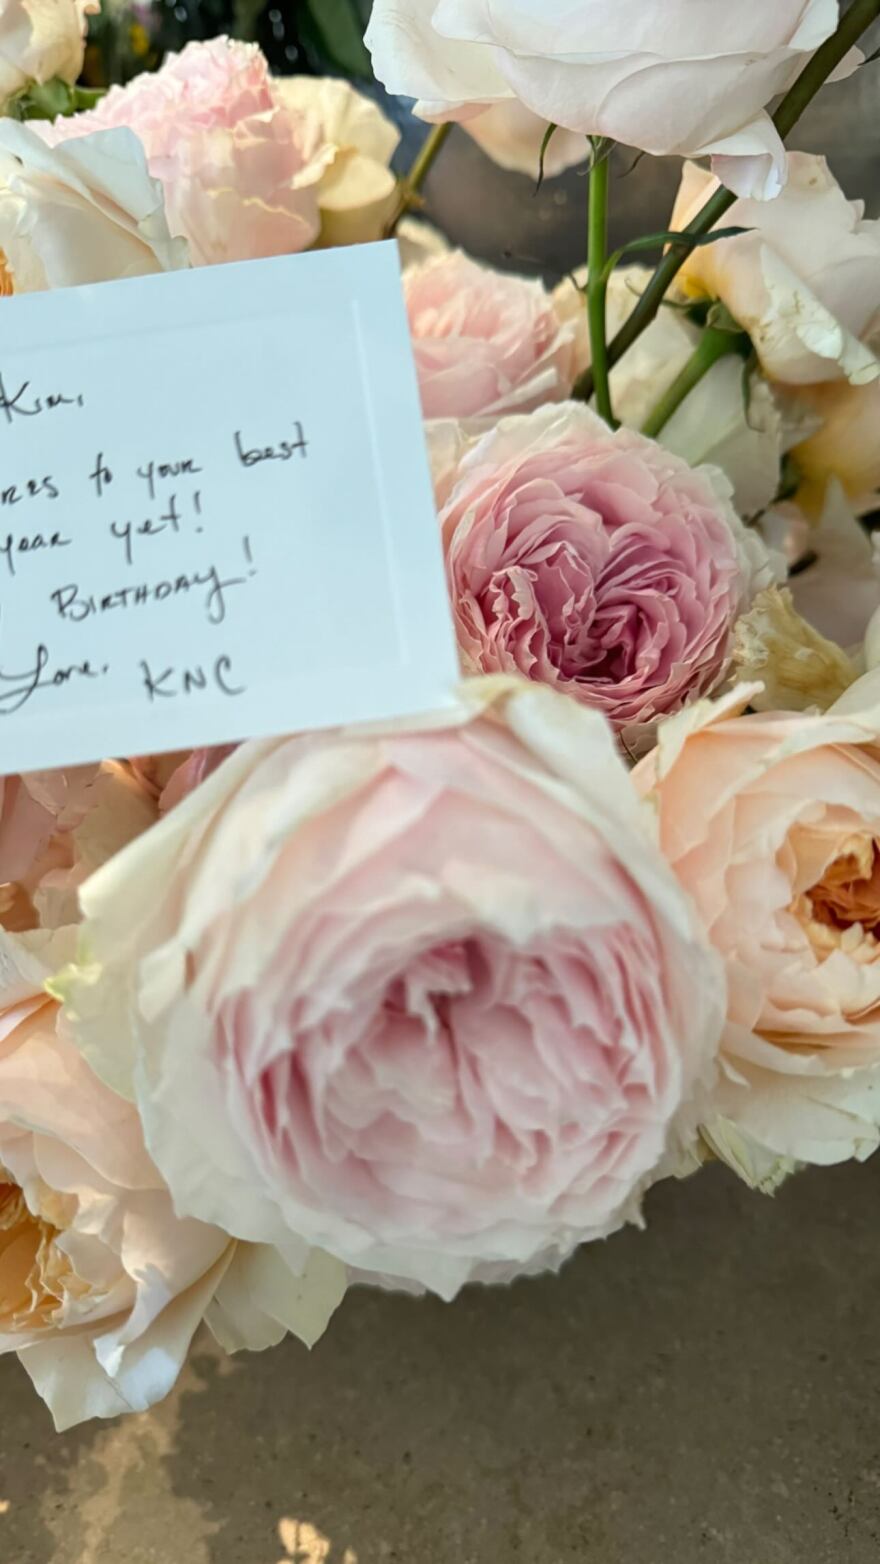 Kim,
res to your best
year yet!
BIRTHDAY!
Love, KNC